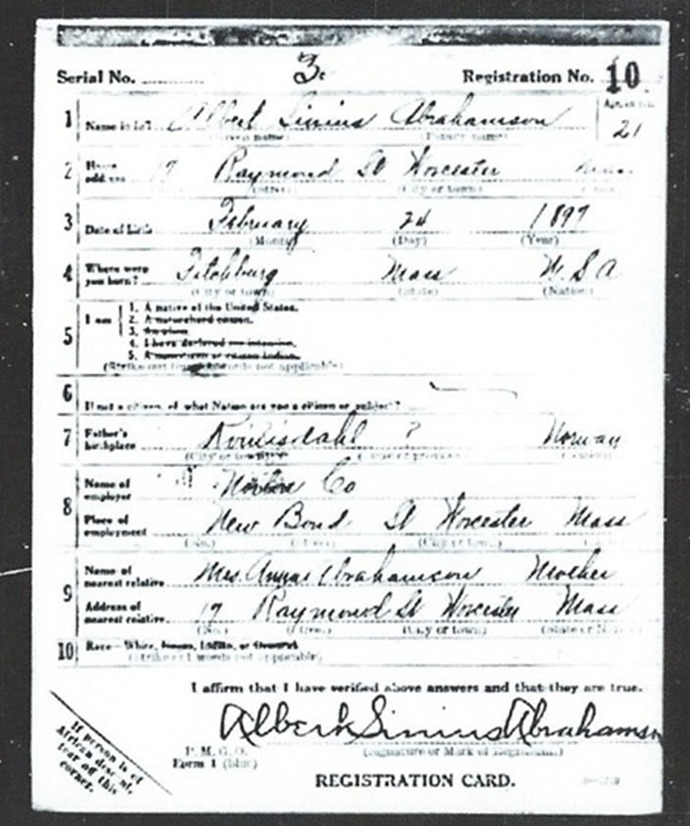 Serial No. 3. Registration No. 10
1 Name in full Albert Sinius Abrahamson
(Given name) (Family name) 21
2 Home address 17 Raymond St Worcester Mass.
(Street) (City or town)
3 Date of birth February 24 1897
(Month) (Day) (Year)
4 Where were you born? Fitchburg Mass U.S.A
(City or town) (State) (Nation)
5 I am
1. A native of the United States.
2. A naturalized citizen.
3. An alien.
4. I have declared my intention.
5.
(Strike out words not applicable)
6 If not a citizen, of what Nation are you a citizen or subject?
7 Father's birthplace ? Norway
(City or town)
8 Name of employer Norton Co
Place of employment New Bond St Worcester Mass
(No.) (Street) (City or town)
9 Name of nearest relative Mrs. Annae Abrahamson Mother
Address of nearest relative 17 Raymond St Worcester Mass
(No.) (Street) (City or town)
10 Race—White, Indian, or Oriental
(Strike out words not applicable)
I affirm that I have verified above answers and that they are true.
Albert Sinius Abrahamson
P. M. G. O.
Form 1 (blue)
(Signature or Mark of Registrant)
REGISTRATION CARD.
If person is of
African descent,
tear off this
corner.